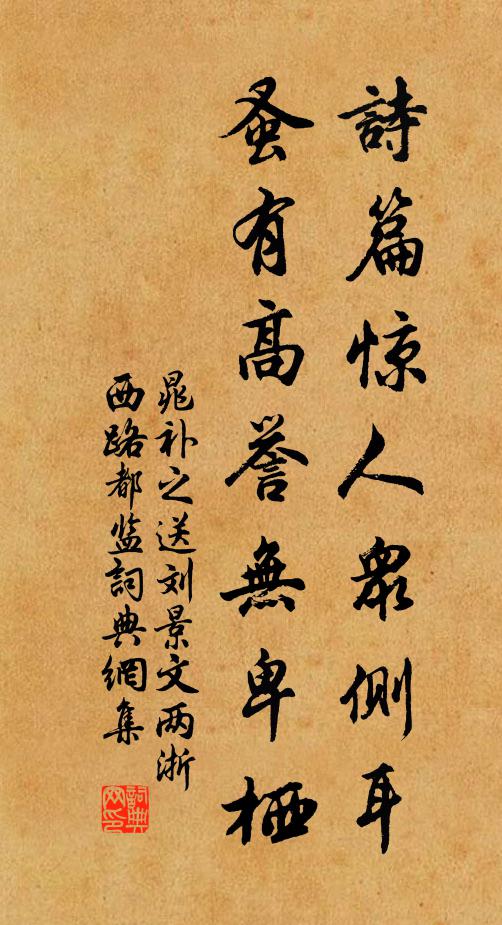 詩篇惊人眾側耳
蚤有高譽無卑栖
晁补之送刘景文两浙
西路都监詞典網集
詞典網印